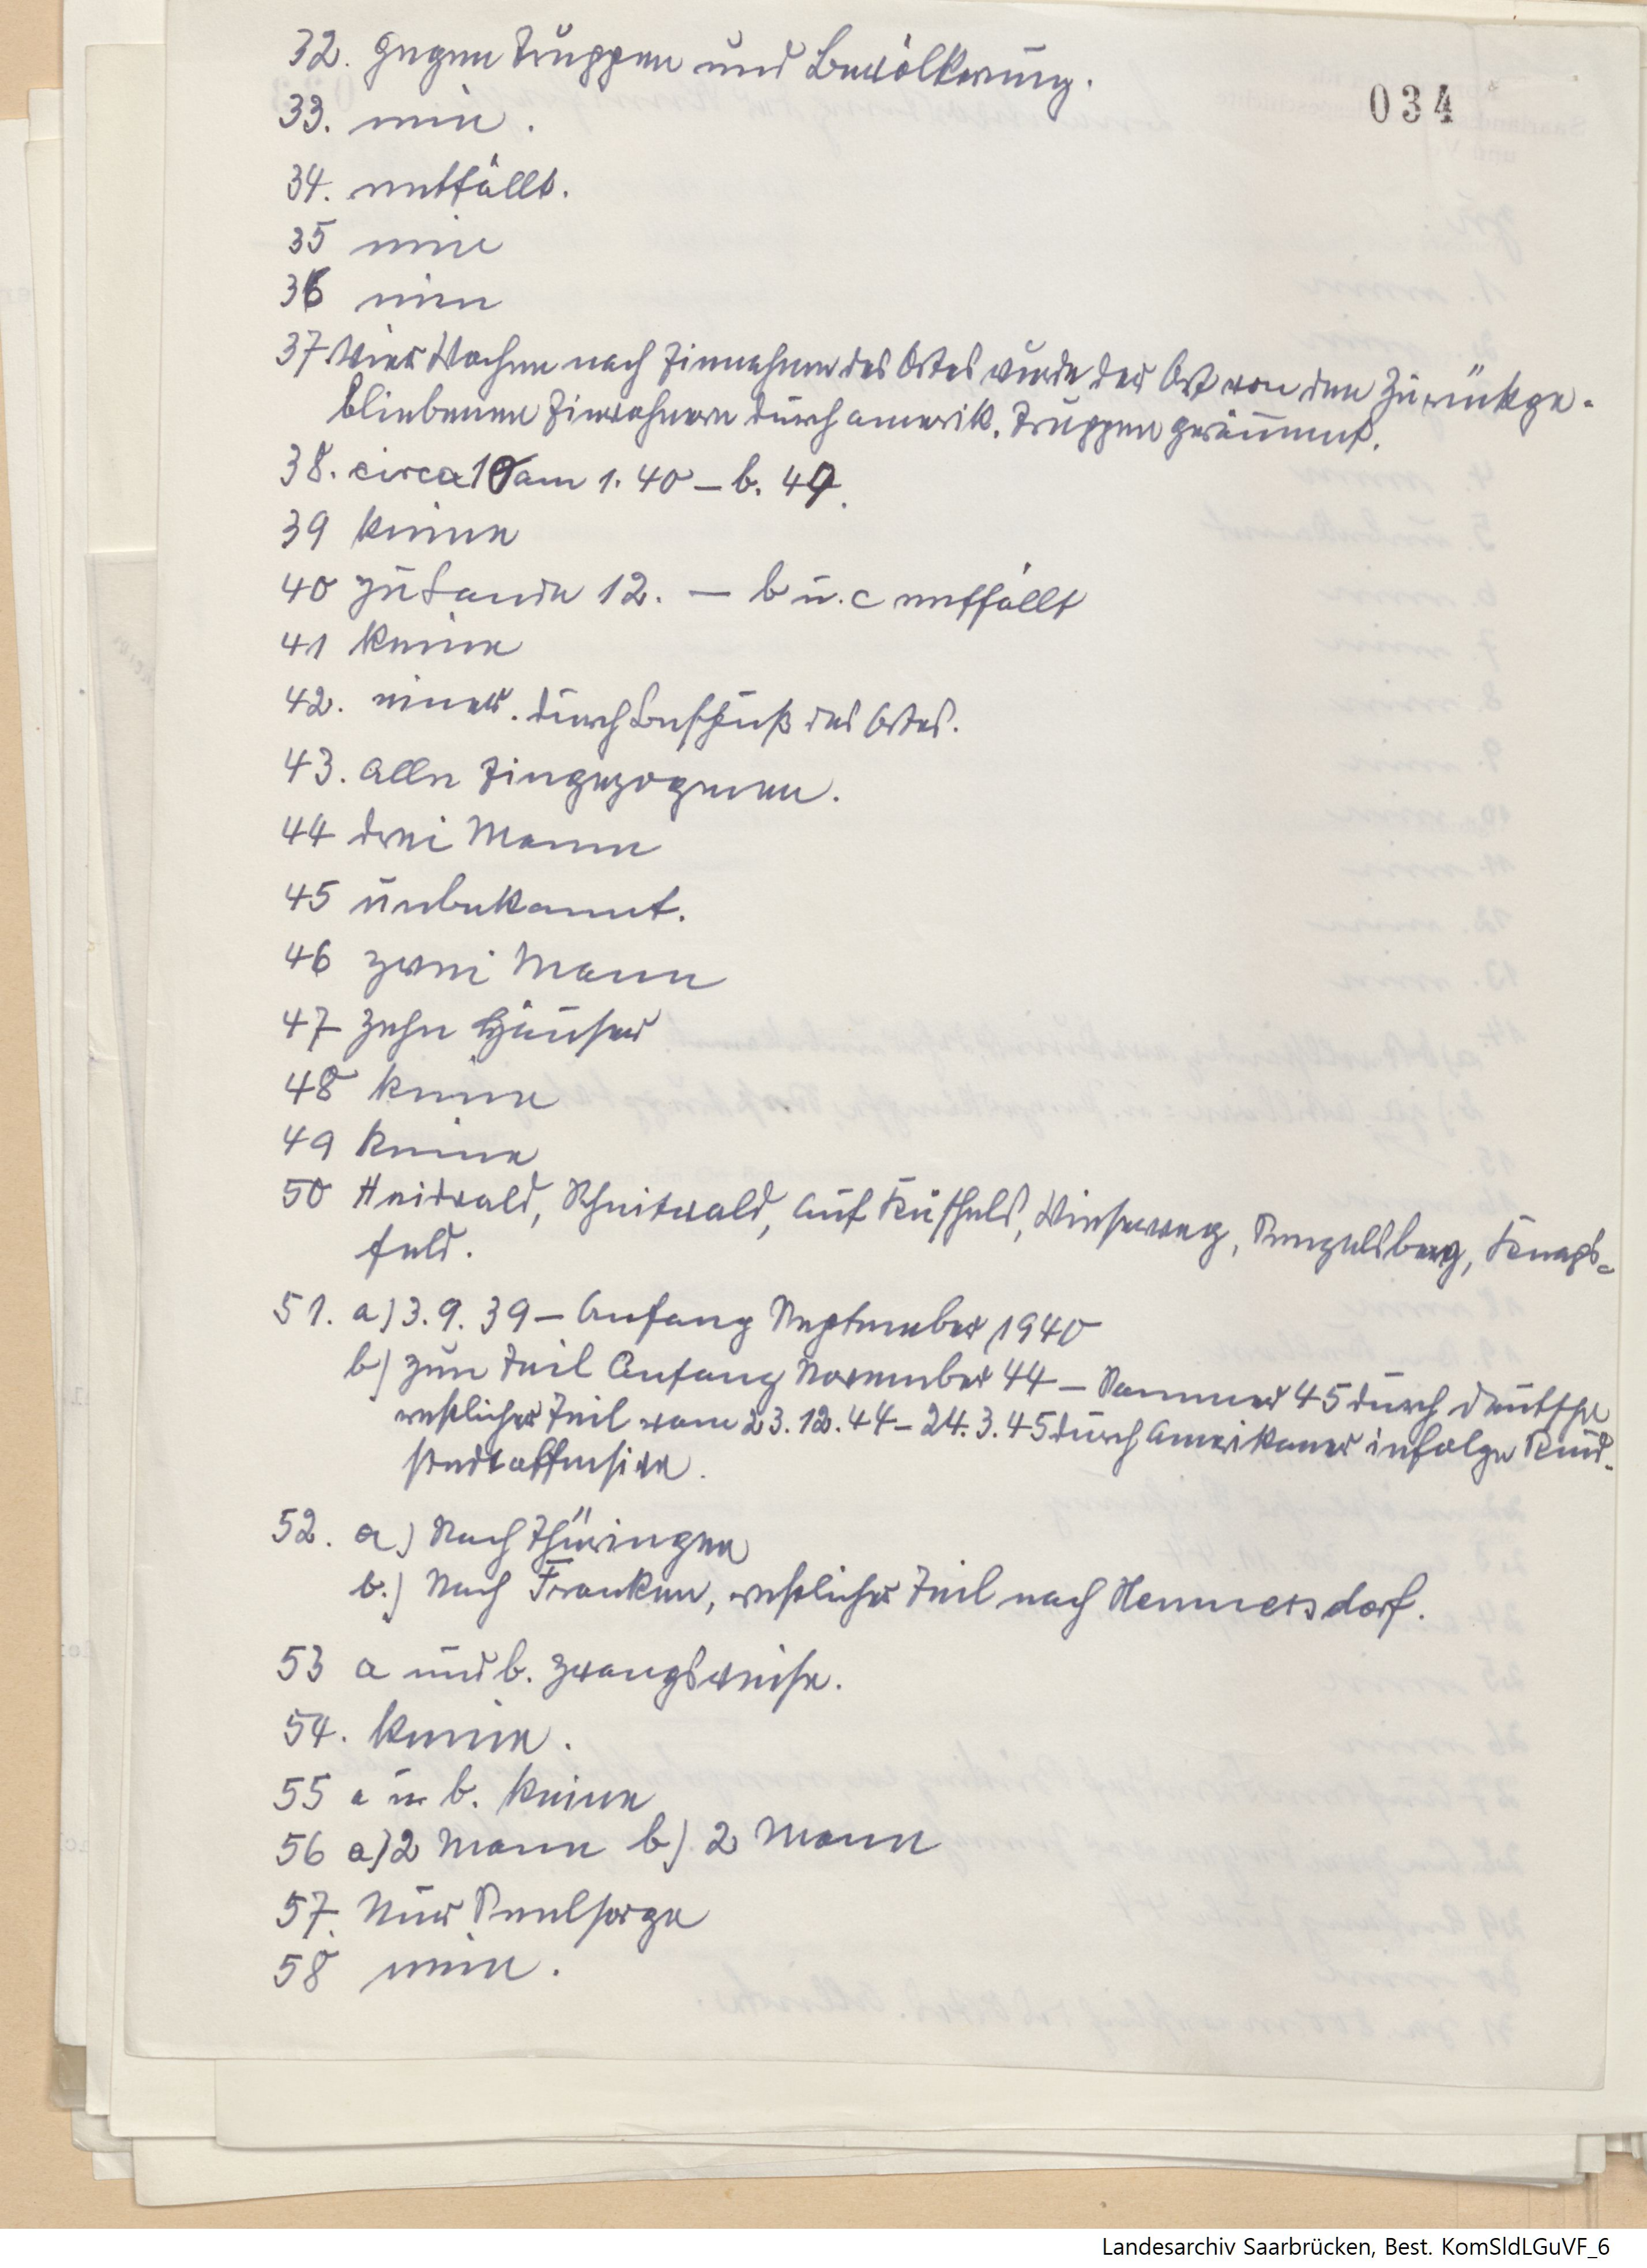 034
32. Gegen Truppen und Bevölkerung.
33. nein.
34. entfällt.
35 nein
36 nein
37 Vier Wochen nach Einnahme des Ortes wurde der Ort von den Zurückge-
bliebenen Einwohnern durch amerik. Truppen geräumt.
38. circa 10 am 1. 40 – b. 49.
39 keine
40 zu Lande 12. — b u. c entfällt
41 keine
42. einer. durch Beschuß des Ortes.
43. Alle Eingezogenen.
44 drei Mann
45 unbekannt.
46 zwei Mann
47 Zehn Häuser
48 keine
49 keine
50 Heidwald, Scheidwald, auf Wieserweg,
feld.
51. a) 3. 9. 39 – Anfang September 1940
b) zum Teil Anfang November 44 – Sommer 45 durch Deutsche
restlicher Teil vom 23. 12. 44 – 24. 3. 45 durch Amerikaner infolge Rund-
stedtoffensive.
52. a) Nach Thüringen
b.) Nach Franken, restlicher Teil nach Hemmersdorf.
53 a und b. zwangsweise.
54. keine.
55 a u b. keine
56 a) 2 Mann b) 2 Mann
57. Nur Seelsorge
58 nein.
Landesarchiv Saarbrücken, Best. KomSldLGuVF_6